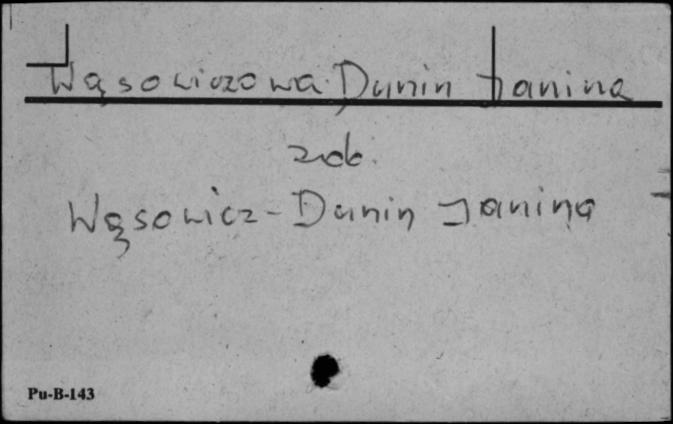 Wąsowiczowa Dunin Janina
zob.
Wąsowicz-Dunin Janina
Pu-B-143